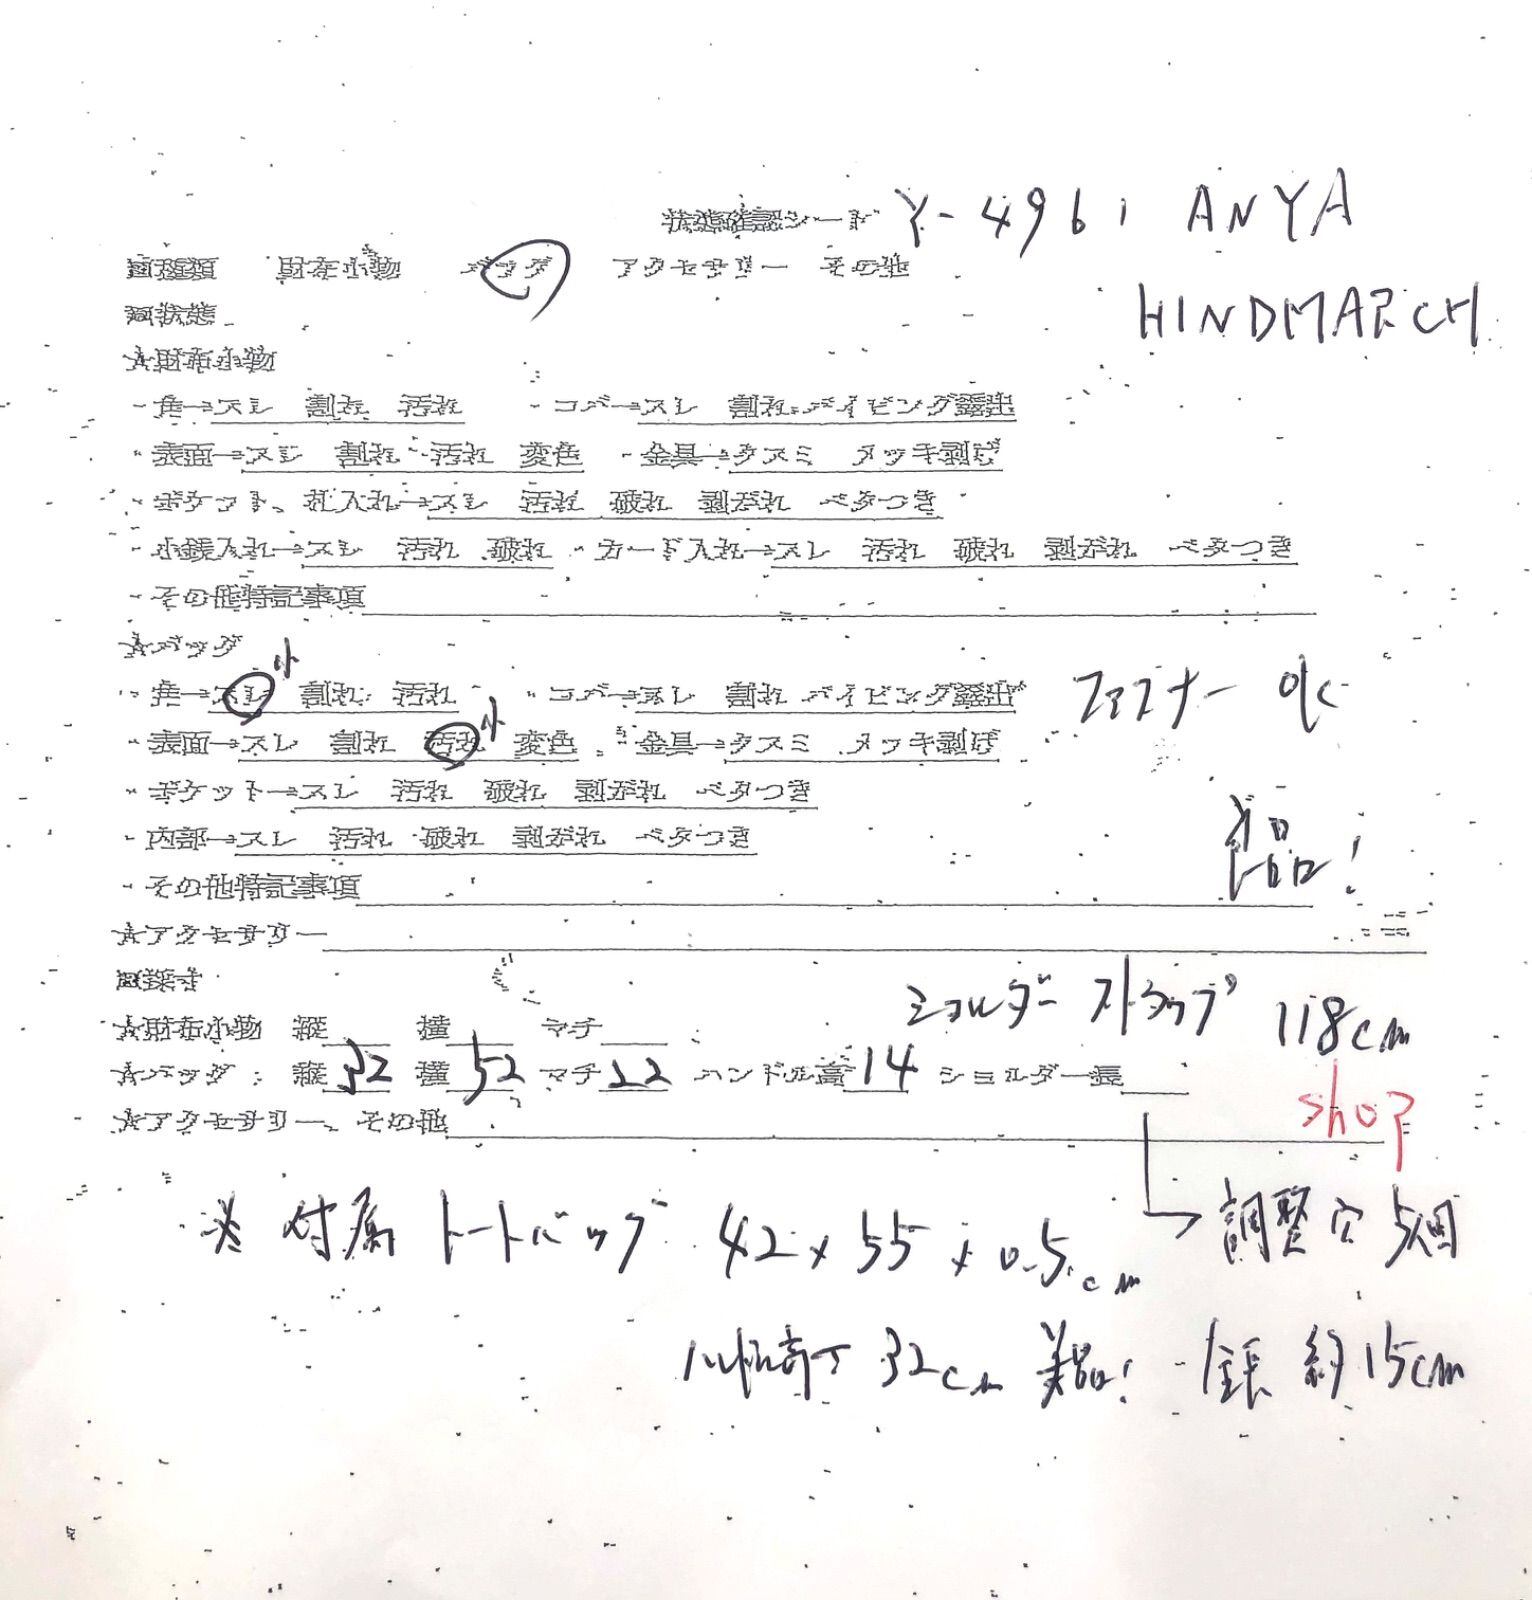 状態確認シート Y-4961 ANYA
□種類 財布小物 バッグ アクセサリー その他
HINDMARCH
□状態
☆財布小物
・角→スレ 割れ 汚れ ・コバ→スレ 割れ パイピング露出
・表面→スレ 割れ 汚れ 変色 ・金具→クスミ メッキ剥げ
・ポケット、札入れ→スレ 汚れ 破れ 剥がれ ベタつき
・小銭入れ→スレ 汚れ 破れ ・カード入れ→スレ 汚れ 破れ 剥がれ ベタつき
・その他特記事項
☆バッグ
小
・角→スレ 割れ 汚れ ・コバ→スレ 割れ パイピング露出 ファスナー OK
小
・表面→スレ 割れ 汚れ 変色 ・金具→クスミ メッキ剥げ
・ポケット→スレ 汚れ 破れ 剥がれ ベタつき
・内部→スレ 汚れ 破れ 剥がれ ベタつき
良品!
・その他特記事項
☆アクセサリー
□採寸
ショルダーストラップ 118cm
☆財布小物 縦 横 マチ
☆バッグ: 縦32 横52 マチ22 ハンドル高14 ショルダー長
shop
☆アクセサリー、その他
※ 付属 トートバッグ 42×55×0.5cm
調整穴 5個
ハンドル高さ 32cm 美品!
全長 約15cm